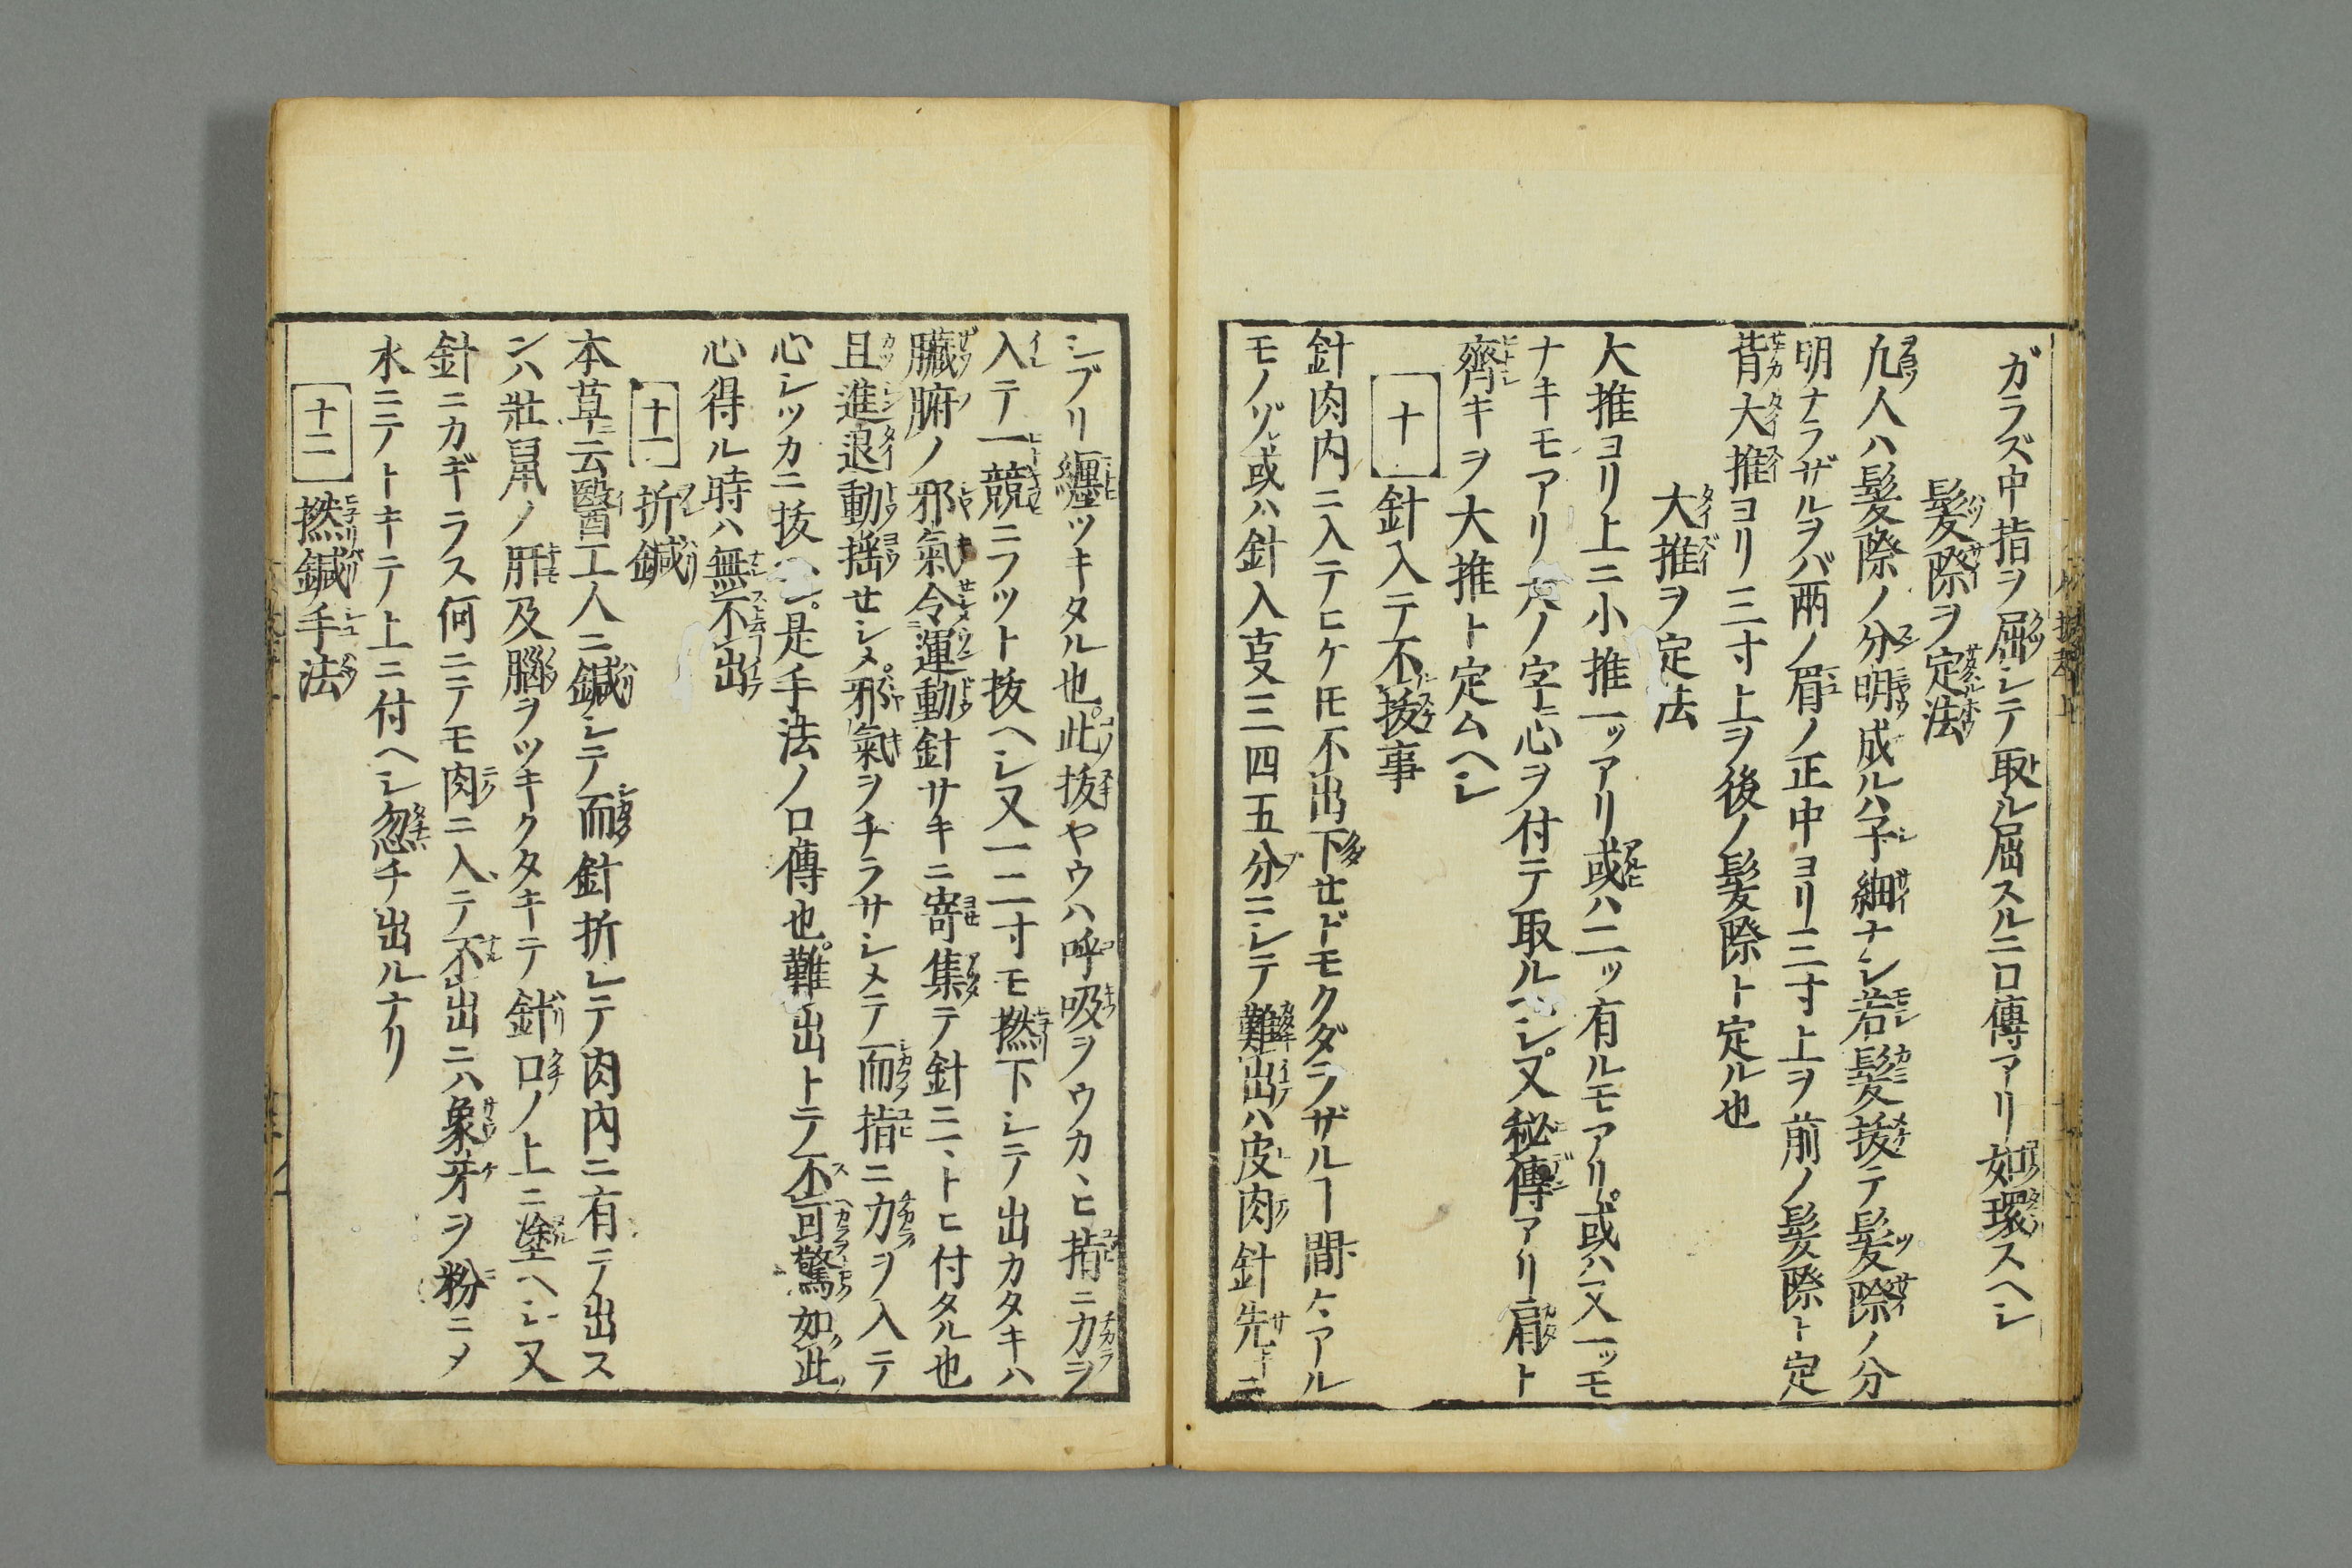 ガラズ中指ヲ屈シテ取ル屈スルニ口傳アリ如環スヘシ
髮際ヲ定法
凡人ハ髮際ノ分明成ルハ子細ナシ若髮抜テ髮際ノ分
明ナラザルヲバ兩ノ眉ノ正中ヨリ三寸上ヲ前ノ髮際ト定
背大推ヨリ三寸上ヲ後ノ髮際ト定ル也
大推ヲ定法
大推ヨリ上ニ小推一ッアリ或ハ二ッ有ルモアリ或ハ又一ッモ
ナキモアリ此ノ字ニ心ヲ付テ取ルヘシ又秘傳アリ肩ト
齊キヲ大推ト定ムヘシ
十 針入テ不抜事
針肉内ニ入テヒケ𪜈不出下セドモクダラザルヿ間々アル
モノゾ或ハ針入叓三四五分ニシテ難出ハ皮肉針先ニ
シブリ纒ツキタル也此抜ヤウハ呼吸ヲウカヽヒ指ニ力ヲ
入テ一競ニフット抜ヘシ又一二寸モ撚下シテ出カタキハ
臟腑ノ邪氣令運動針サキニ寄集テ針ニマトヒ付タル也
且進退動揺セシメ邪氣ヲチラサシメテ而指ニ力ヲ入テ
心シツカニ抜ヘシ是手法ノ口傳也難出トテ不可驚如此
心得ル時ハ無不出
十一 折鍼
本草云醫工人ニ鍼シテ而針折レテ肉内ニ有テ出ス
ンハ壯鼠ノ肝及腦ヲツキクタキテ針口ノ上ニ塗ヘシ又
針ニカギラス何ニテモ肉ニ入テ不出ニハ象牙ヲ粉ニメ
水ニテトキテ上ニ付ヘシ忽チ出ルナリ
十二 撚鍼手法